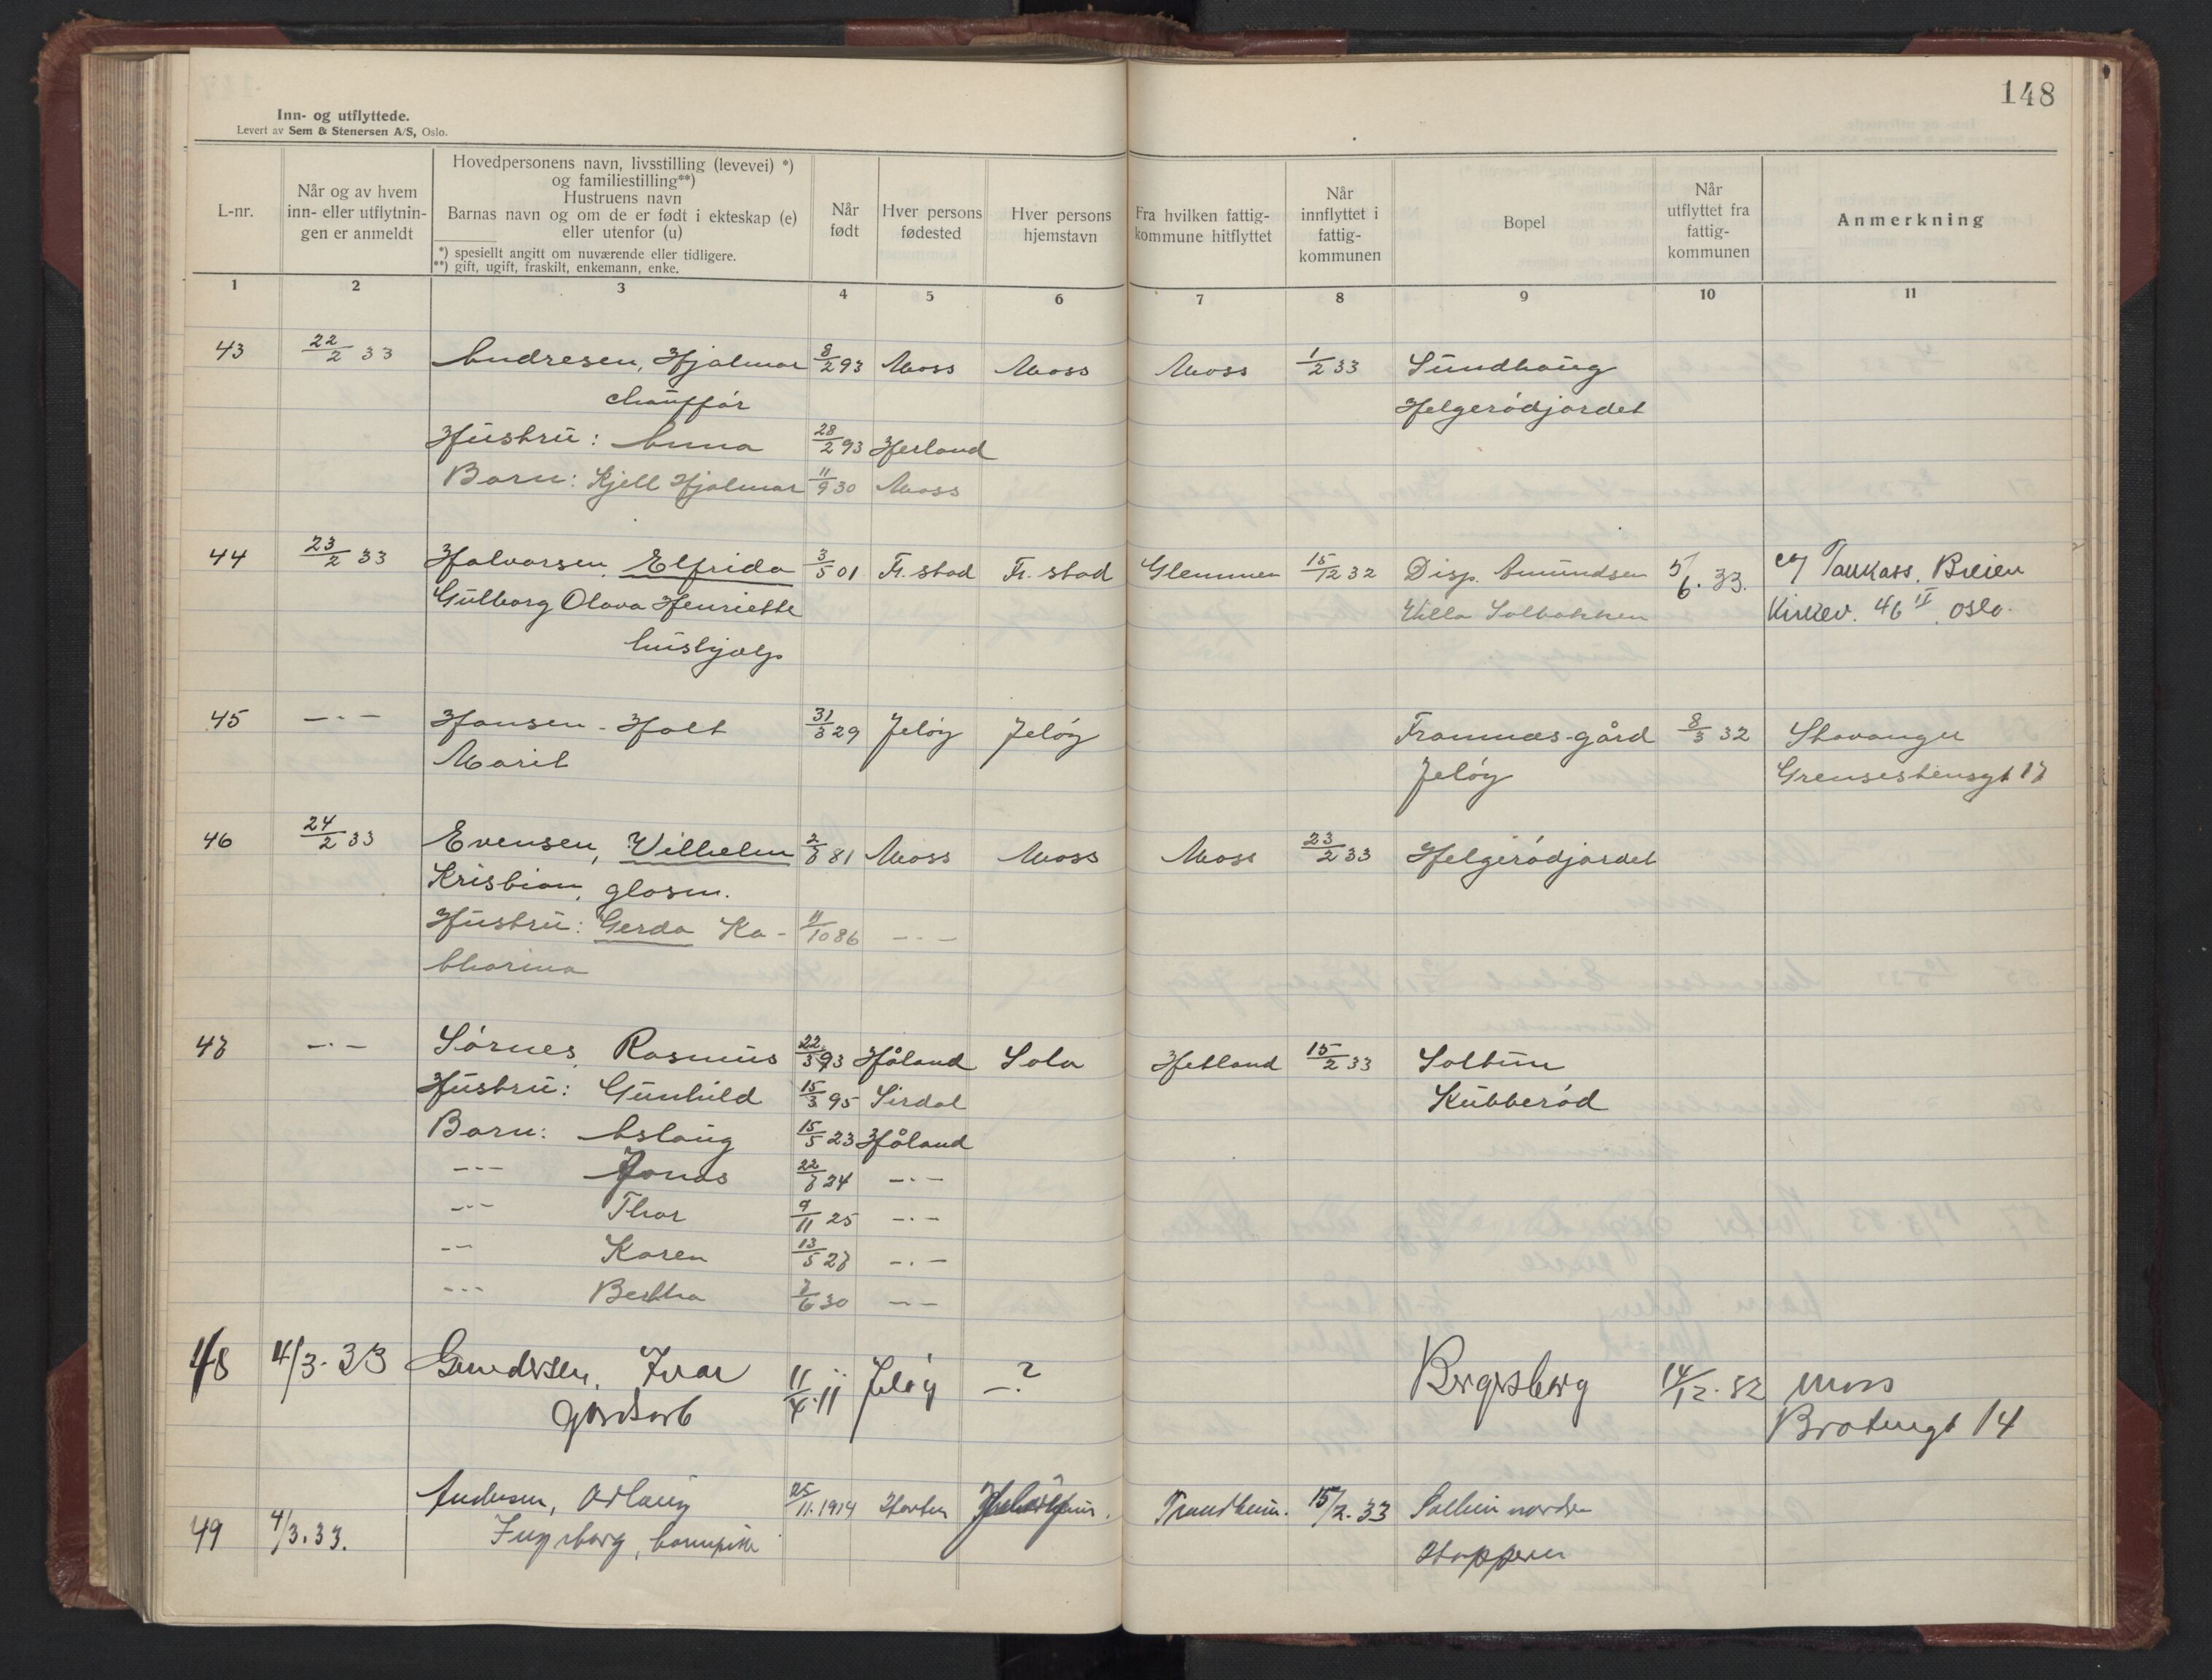 148
Inn- og utflyttede.
Levert av Sem & Stenersen A/S, Oslo.
L-nr.
Når og av hvem
inn- eller utflytnin-
gen er anmeldt
Hovedpersonens navn, livsstilling (levevei) *)
og familiestilling**)
Hustruens navn
Barnas navn og om de er født i ekteskap (e)
eller utenfor (u)
*) spesiellt angitt om nuværende eller tidligere.
**) gift, ugift, fraskilt, enkemann, enke.
Når
født
Hver persons
fødested
Hver persons
hjemstavn
Fra hvilken fattig-
kommune hitflyttet
Når
innflyttet i
fattig-
kommunen
Bopel
Når
utflyttet fra
fattig-
kommunen
Anmerkning
1 2 3 4 5 6 7 8 9 10 11
43 22/2 33 Andresen, Hjalmar 8/2 93 Moss Moss Moss 1/2 33 Sundhaug
chauffør Helgerødjordet
Hustru: Anna 28/2 93 Herland
Barn: Kjell Hjalmar 11/9 30 Moss
44 23/2 33 Halvorsen, Elfrida 3/5 01 Fr. stad Fr. stad Glemmen 15/12 32 Disp. Amundsen 5/6. 33. Breien
Gulborg Olava Henriette Villa Solbakken Kirkev. 46 II. Oslo.
hushjælp
45 -·- Hansen-Holt 31/3 29 Jeløy Jeløy Framnæs-gård 8/3 32 Stavanger
Marit Jeløy Grensestensgt 17
46 24/2 33 Evensen, Wilhelm 81 Moss Moss Moss 23/2 33 Helgerødjordet
Kristian, glasm.
Hustru: Gerda Ka- 11/10 86 -·-
tharina
47 -·- Sørnes, Rasmus 22/3 93 Håland Sola Hetland 15/2 33 Soltun
Hustru: Gunhild 15/3 95 Sirdal Kubberød
Barn: Aslaug 15/5 23 Håland
--- Jonas 22/7 24 -·-
--- Thor 9/11 25 -·-
-- Karen 13/5 27 -·-
--- Bertha 7/6 30 --
48 4/3. 33 Gundersen, Ivar 11/4. 11 Jeløy -? Bergersborg 14/12. 32 Moss
gårdsarb Bråtengt 14
Andersen, Aslaug 25/11. 1914 Horten Trondheim. 15/2. 33 Solheim nordre
49 4/3. 33. Ingeborg, barnepike Stopperen